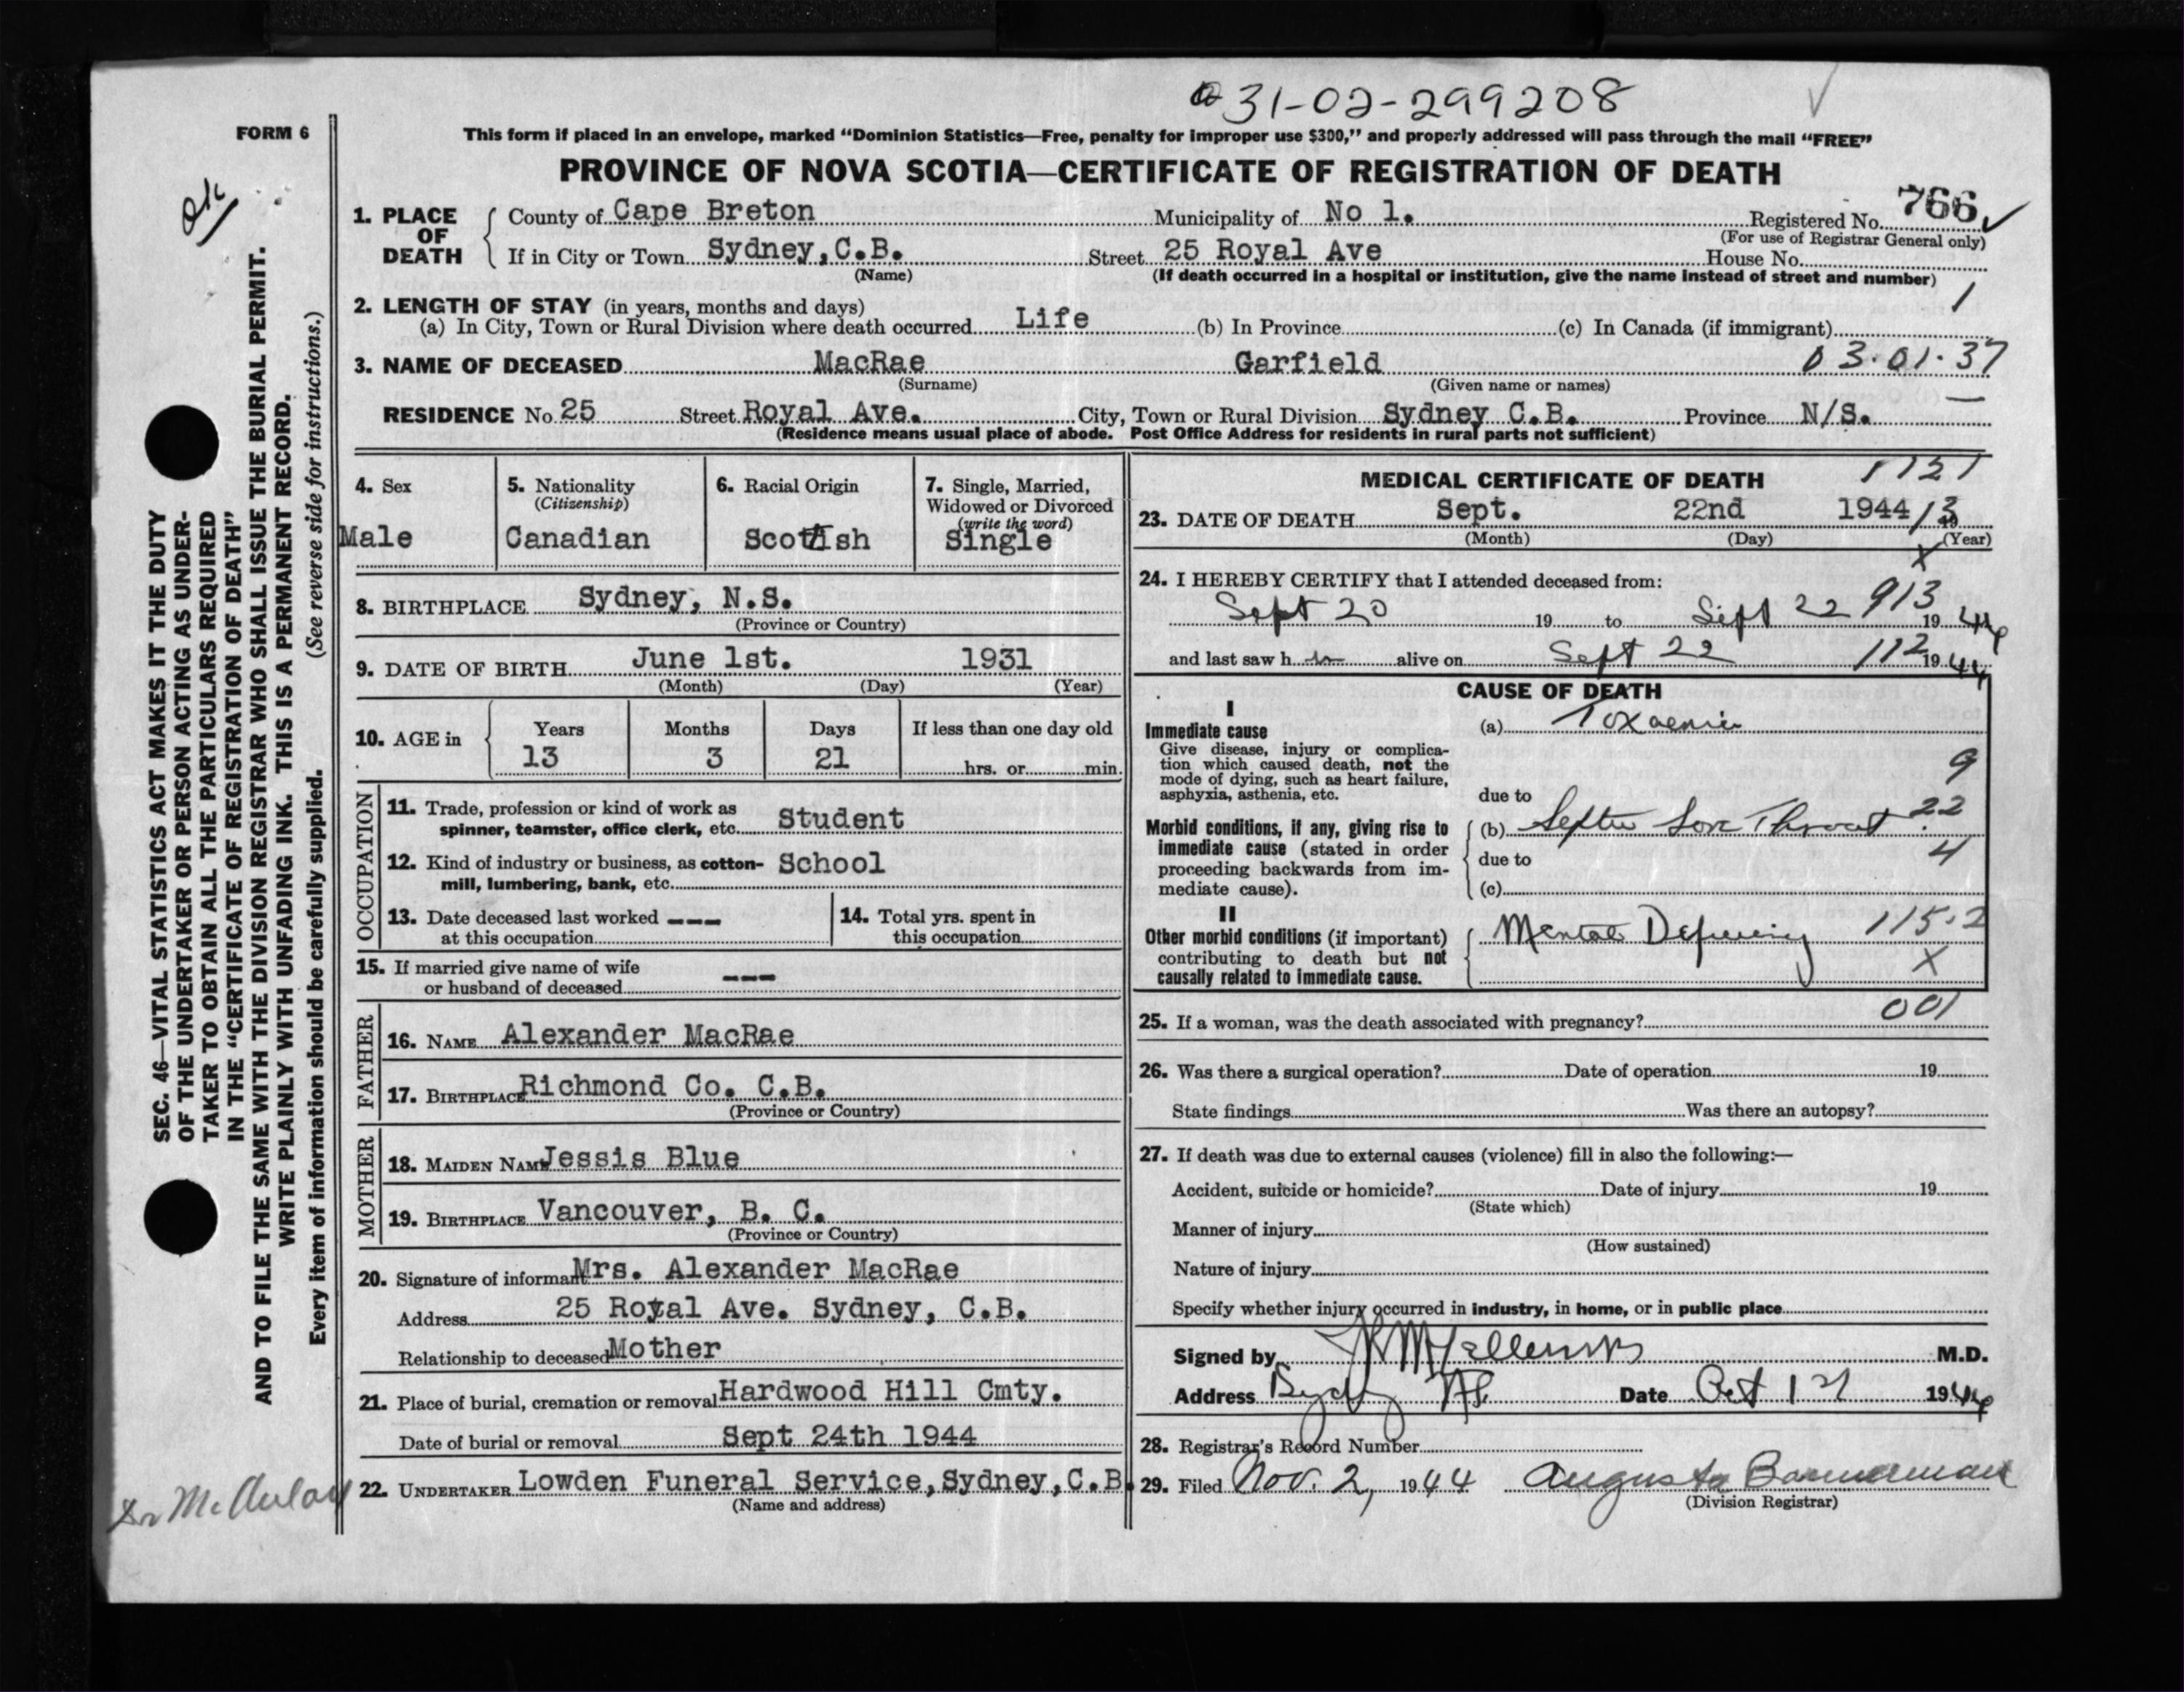 31-02-299208
FORM 6
This form if placed in an envelope, marked “Dominion Statistics—Free, penalty for improper use $300,” and properly addressed will pass through the mail “FREE”
PROVINCE OF NOVA SCOTIA—CERTIFICATE OF REGISTRATION OF DEATH
ok
SEC. 46—VITAL STATISTICS ACT MAKES IT THE DUTY
OF THE UNDERTAKER OR PERSON ACTING AS UNDER-
TAKER TO OBTAIN ALL THE PARTICULARS REQUIRED
IN THE “CERTIFICATE OF REGISTRATION OF DEATH”
AND TO FILE THE SAME WITH THE DIVISION REGISTRAR WHO SHALL ISSUE THE BURIAL PERMIT.
WRITE PLAINLY WITH UNFADING INK. THIS IS A PERMANENT RECORD.
Every item of information should be carefully supplied. (See reverse side for instructions.)
1. PLACE OF DEATH County of Cape Breton Municipality of No 1. Registered No. 766
(For use of Registrar General only)
If in City or Town Sydney, C.B. Street 25 Royal Ave House No.
(Name) (If death occurred in a hospital or institution, give the name instead of street and number)
2. LENGTH OF STAY (in years, months and days) 1
(a) In City, Town or Rural Division where death occurred Life (b) In Province (c) In Canada (if immigrant)
3. NAME OF DECEASED MacRae Garfield 03·01·37
(Surname) (Given name or names)
RESIDENCE No. 25 Street Royal Ave. City, Town or Rural Division Sydney C.B. Province N/S.
(Residence means usual place of abode. Post Office Address for residents in rural parts not sufficient)
4. Sex
Male
5. Nationality
(Citizenship)
Canadian
6. Racial Origin
Scottish
7. Single, Married,
Widowed or Divorced
(write the word)
Single
8. BIRTHPLACE Sydney, N.S.
(Province or Country)
9. DATE OF BIRTH June 1st. 1931
(Month) (Day) (Year)
10. AGE in Years Months Days If less than one day old
13 3 21 hrs. or min.
OCCUPATION
11. Trade, profession or kind of work as
spinner, teamster, office clerk, etc. Student
12. Kind of industry or business, as cotton-
mill, lumbering, bank, etc. School
13. Date deceased last worked ---
at this occupation
14. Total yrs. spent in
this occupation
15. If married give name of wife ---
or husband of deceased
FATHER
16. NAME Alexander MacRae
17. BIRTHPLACE Richmond Co. C.B.
(Province or Country)
MOTHER
18. MAIDEN NAME Jessis Blue
19. BIRTHPLACE Vancouver, B. C.
(Province or Country)
20. Signature of informant Mrs. Alexander MacRae
Address 25 Royal Ave. Sydney, C.B.
Relationship to deceased Mother
21. Place of burial, cremation or removal Hardwood Hill Cmty.
Date of burial or removal Sept 24th 1944
22. UNDERTAKER Lowden Funeral Service, Sydney, C.B.
(Name and address)
MEDICAL CERTIFICATE OF DEATH 1121
23. DATE OF DEATH Sept. 22nd 1944 13
(Month) (Day) (Year)
X
24. I HEREBY CERTIFY that I attended deceased from:
Sept 20 19 to Sept 22 913 1944
and last saw h alive on Sept 22 112 1944
CAUSE OF DEATH
I
Immediate cause
Give disease, injury or complica-
tion which caused death, not the
mode of dying, such as heart failure,
asphyxia, asthenia, etc.
(a) Toxaemia
9
due to
Morbid conditions, if any, giving rise to
immediate cause (stated in order
proceeding backwards from im-
mediate cause).
(b) Septic Sore Throat 22
due to 4
(c)
II
Other morbid conditions (if important)
contributing to death but not
causally related to immediate cause.
Mental Deficiency 115.2
X
001
25. If a woman, was the death associated with pregnancy?
26. Was there a surgical operation? Date of operation 19
State findings Was there an autopsy?
27. If death was due to external causes (violence) fill in also the following:—
Accident, suicide or homicide? Date of injury 19
(State which)
Manner of injury
(How sustained)
Nature of injury
Specify whether injury occurred in industry, in home, or in public place
Signed by M.D.
Address Sydney NS Date Oct 1944
28. Registrar's Record Number
29. Filed Nov. 2, 1944 Augusta Bannerman
(Division Registrar)